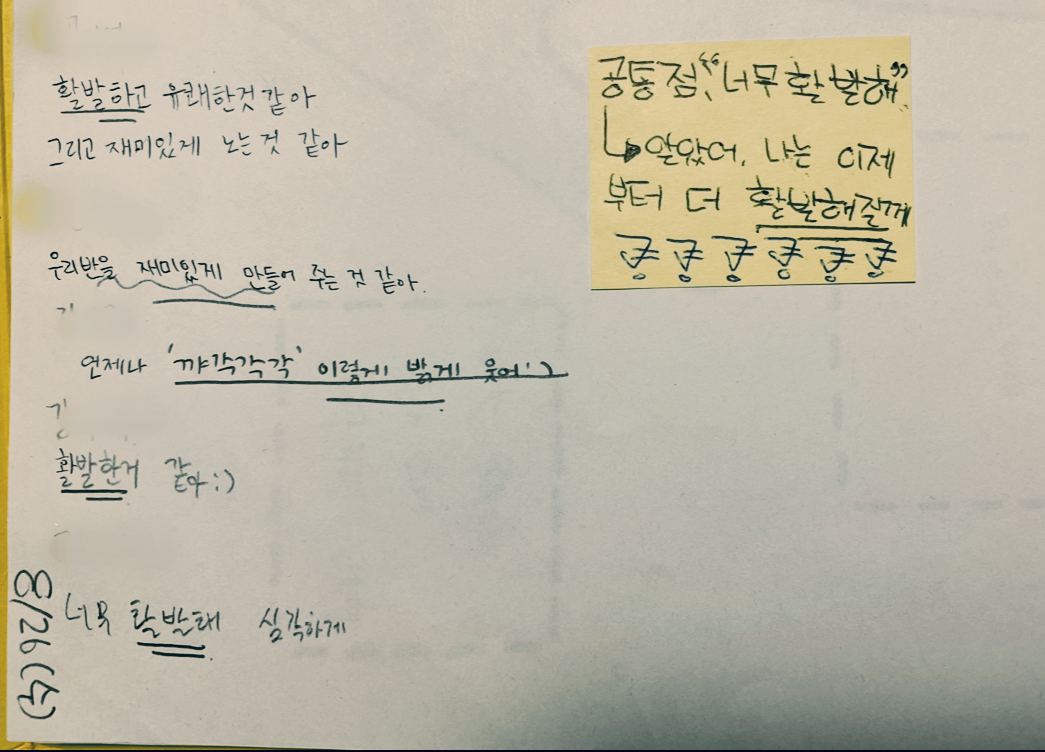 활발하고 유쾌한것 같아
그리고 재미있게 노는 것 같아
우리반을 재미있게 만들어 주는 것 같아.
언제나 '꺄각각각' 이렇게 밝게 웃어:)
활발한거 같아:)
너무 활발해 심각하게
8/26(수)
공통점, "너무 활발해"
알았어, 나는 이제
부터 더 활발해질게